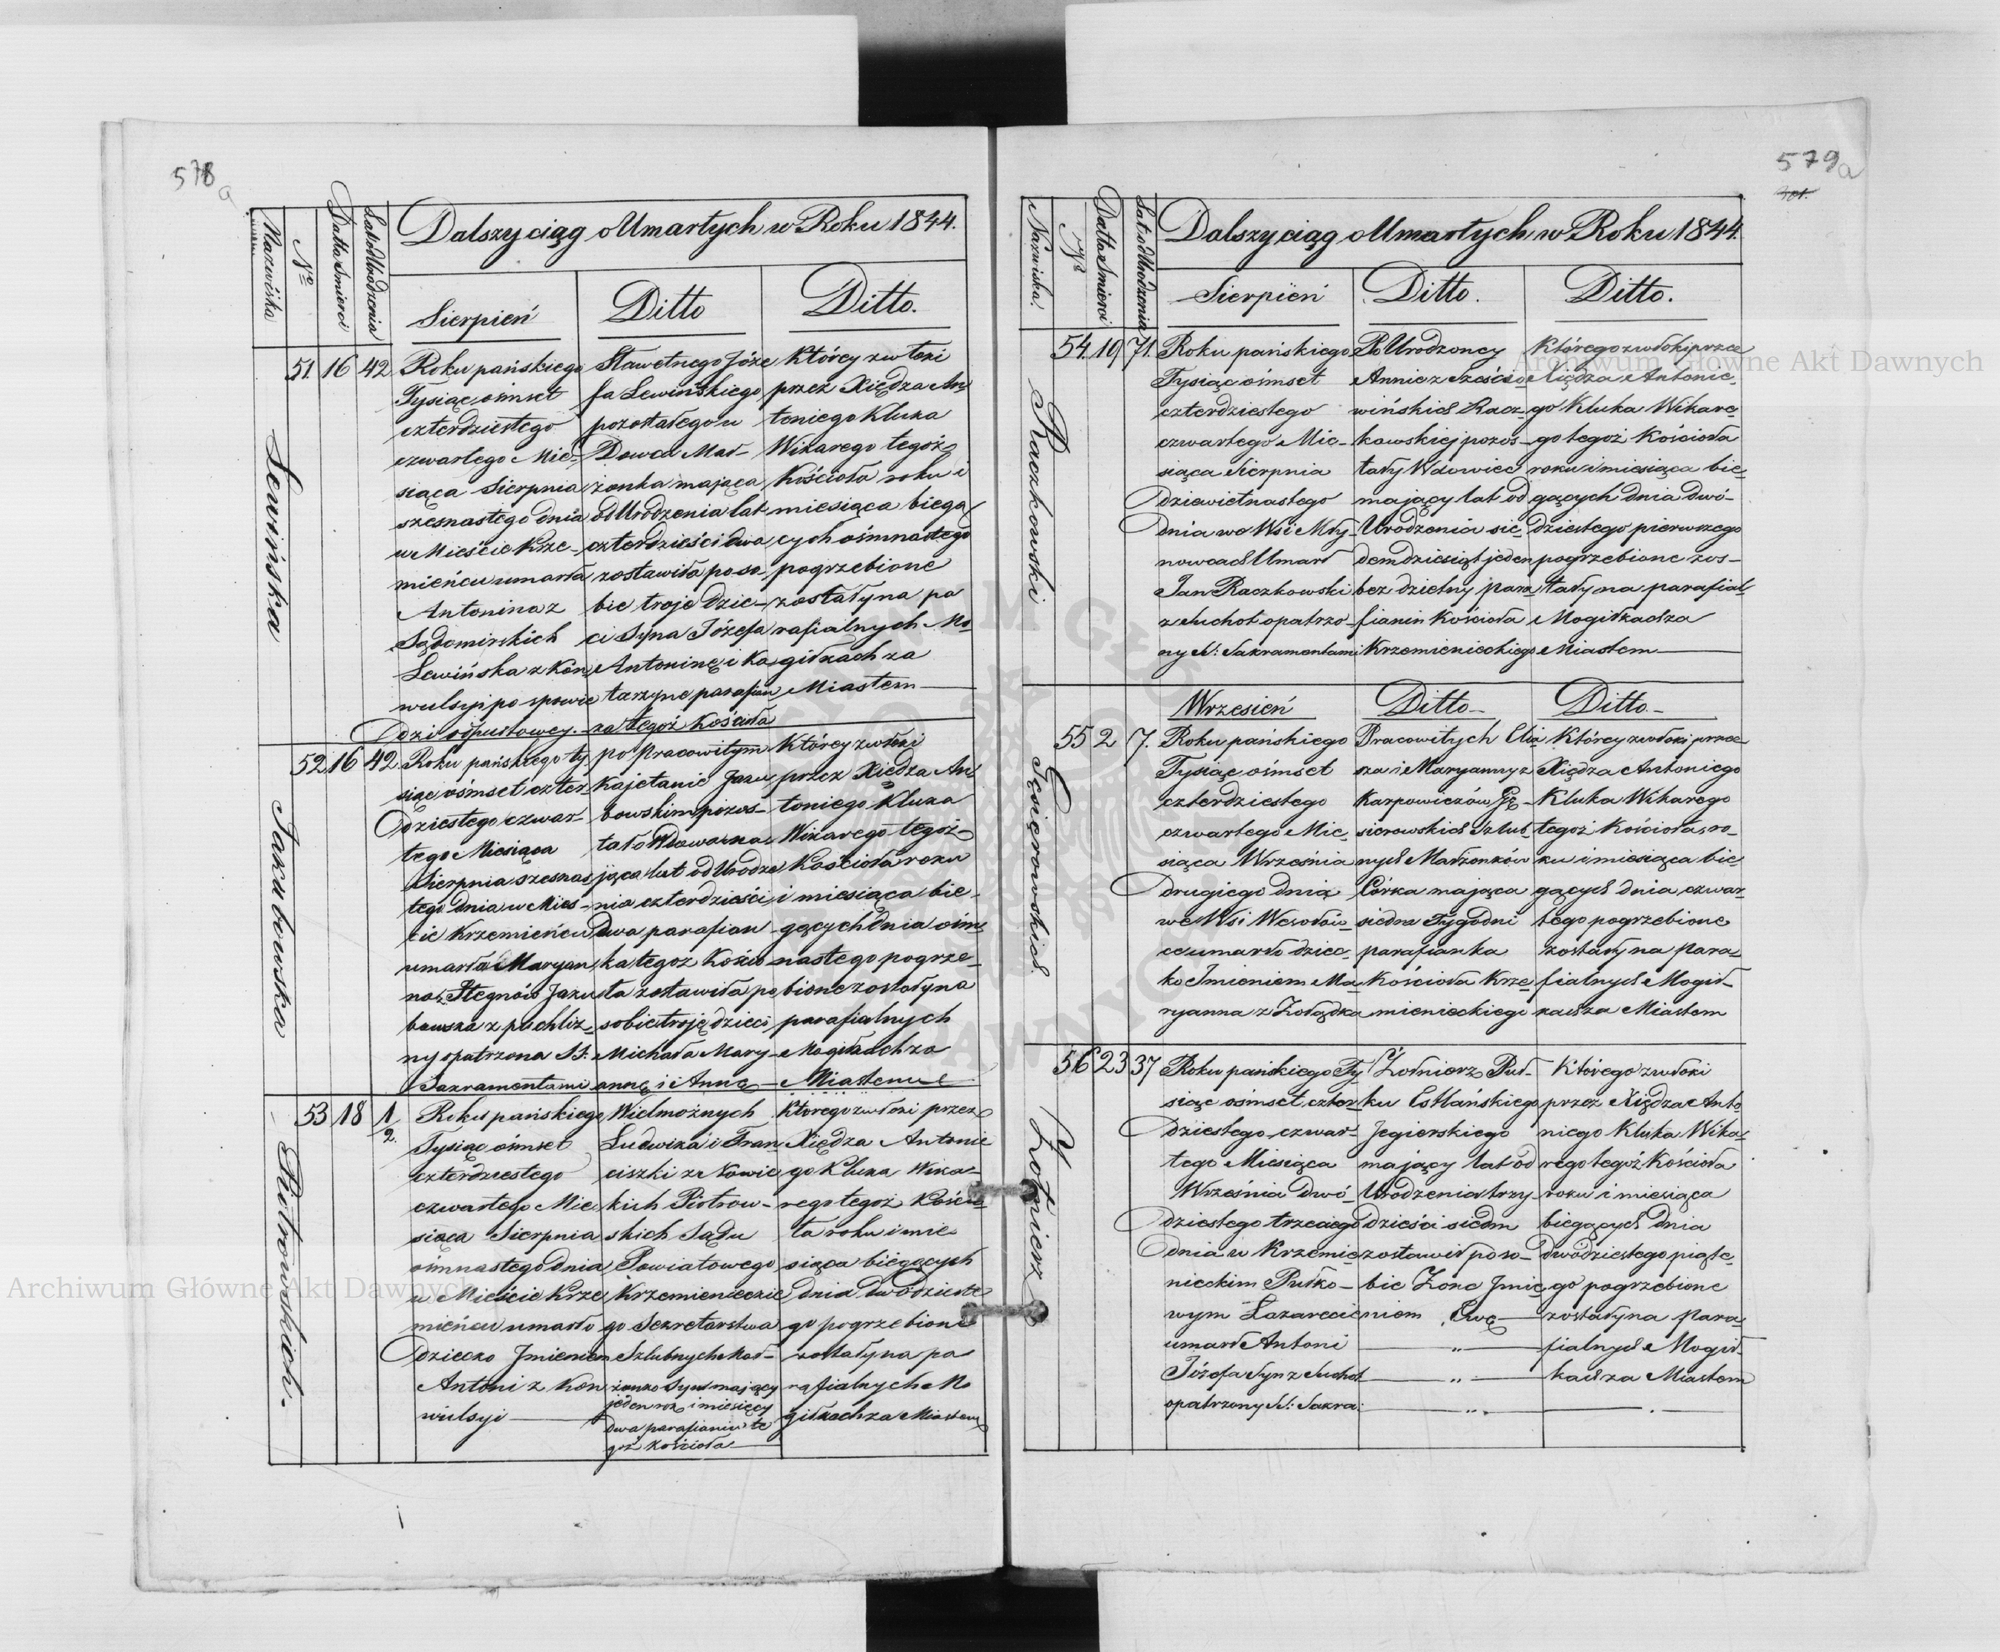 578
a
Nazwiska
Nº
Datta Smierci
Dalszy ciąg o Umarłych w Roku 1844.
Sierpień
Ditto
Ditto.
Lewińska
51
16
42
Roku pańskiego
Tysiąc ośmset
czterdziestego
czwartego Mie-
siąca Sierpnia
szesnastego dnia
w Mieście Krze-
mieńcu umarła
Antonina z
Sądomirskich
Lewińska z Kon
wulsyi po spowie
dzi odpustowey.
Sławetnego Józe
fa Lewińskiego
pozostałego u
Dowca Mał-
żonka mająca
od Urodzenia lat
czterdzieści dwa
zostawiła po so-
bie troje dzie-
ci Syna Józefa
Antoninę i Ka
tarzynę parafian
ka tegoż Kościoła
Którey zwłoki
przez Xiędza An
toniego Kluka
Wikarego tegoż
Kościoła roku i
miesiąca biegą
cych ósmnastego
pogrzebione
zostały na pa
rafialnych Mo
giłkach za
Miastem
Jakubowska
52
16
42
Roku pańskiego ty
siąc ośmset czter
dziestego czwar-
tego Miesiąca
Sierpnia szesnas
tego dnia w Mieś-
cie Krzemieńcu
umarła Maryan
na z Stegnów Jaku
bowska z puchliz
ny opatrzona SS:
Sakramentami
po pracowitym
Kajetanie Jaku
bowskim pozos-
tała Wdowa ma
jąca lat od Urodze
nia czterdzieści
dwa parafian
ka tegoż Kościo
ła zostawiła po
sobie troję dzieci
Michała Mary-
annę i Annę
Którey zwłoki
przez Xiędza An
toniego Kluka
Wikarego tegoż
Kościoła roku
i miesiąca bie-
gących dnia ośm
nastego pogrze-
bione zostały na
parafialnych
Mogiłkach za
Miastem
Piotrowskich.
53
18
1/2.
Roku pańskiego
Tysiąc ośmset
czterdziestego
czwartego Mie
siąca Sierpnia
ośmnastego dnia
w Mieście Krze
mieńcu umarło
dziecko Jmieniem
Antoni z Kon
wulsyi
Wielmożnych
Ludwika i Fran
ciszki
kich Piotrow-
skich Sądu
Powiatowego
Krzemienieckie
go Sekretarstwa
Szlubnych Mał-
żonków Syn mający
jeden rok i miesięcy
dwa parafianin te
goż Kościoła
Którego zwłoki przez
Xiędza Antonie
go Kluka Wika-
rego tegoż Kościo
ła roku i mie
siąca bieżących
dnia dwódzieste
go pogrzebione
zostały na pa
rafialnych Mo
giłkach za Miastem
579a
Nazwiska.
Nº
Datta Smierci
Lat od Urodzenia
Dalszy ciąg o Umarłych w Roku 1844.
Sierpień
Ditto.
Ditto.
Raczkowski
54.
19
71.
Roku pańskiego
Tysiąc ośmset
czterdziestego
czwartego Mie-
siąca Sierpnia
dziewietnastego
dnia we Wsi Mły-
nowcach Umarł
Jan Raczkowski
z suchot opatrzo-
ny SS: Sakramentami
Po Urodzoney
Annie z
wińskich Racz-
kowskiej pozos-
tały Wdowiec
mający lat od
Urodzenia sie-
demdziesiąt jeden
bezdzietny para
fianin Kościoła
Krzemienieckiego
Którego zwłoki przez
Xiędza Antonie
go Kluka Wikare-
go tegoż Kościoła
roku i miesiąca bie-
gących dnia dwó-
dziestego pierwszego
pogrzebione zos-
tały na parafial-
Mogiłkach za
Miastem
Wrzesień
Ditto
Ditto
Gęsierowskich
55
2
7.
Roku pańskiego
Tysiąc ośmset
czterdziestego
czwartego Mie
siąca Września
drugiego dnia
we Wsi Wesołów
ce umarło dziec-
ko Jmieniem Ma
ryanna z Żołądka
Pracowitych Elia
sza i Maryanny z
Karpowiczów Gę-
sierowskich Szlub
nych Małżonków
Córka mająca
siedm Tygodni
parafianka
Kościoła Krze
mienieckiego
Którey zwłoki prze
Xiędza Antoniego
Kluka Wikarego
tegoż Kościoła ro-
ku i miesiąca bie
gących dnia czwar
tego pogrzebione
zostały na Para-
fialnych Mogił-
kach za Miastem
Żołnierz
56
23
37
Roku pańskiego Ty
siąc ośmset czter
dziestego czwar-
tego Miesiąca
Września dwó-
dziestego trzeciego
dnia w Krzemie
nieckim Pułko-
wym Lazarecie
umarł Antoni
Józefa Syn z Suchot
opatrzony SS: Sakra:
Żołnierz Puł-
ku Estlanskiego
Jegierskiego
mający lat od
Urodzenia trzy-
dzieści siedm
zostawił po so-
bie Żonę Jmie
niem Ewę
Którego zwłoki
przez Xiędza Anto
niego Kluka Wika-
rego tegoż Kościoła
roku i miesiąca
biegących dnia
dwódziestego piąte-
go pogrzebione
zostały na Para-
fialnych Mogił-
kach za Miastem
Archiwum Główne Akt Dawnych
Archiwum Główne Akt Dawnych